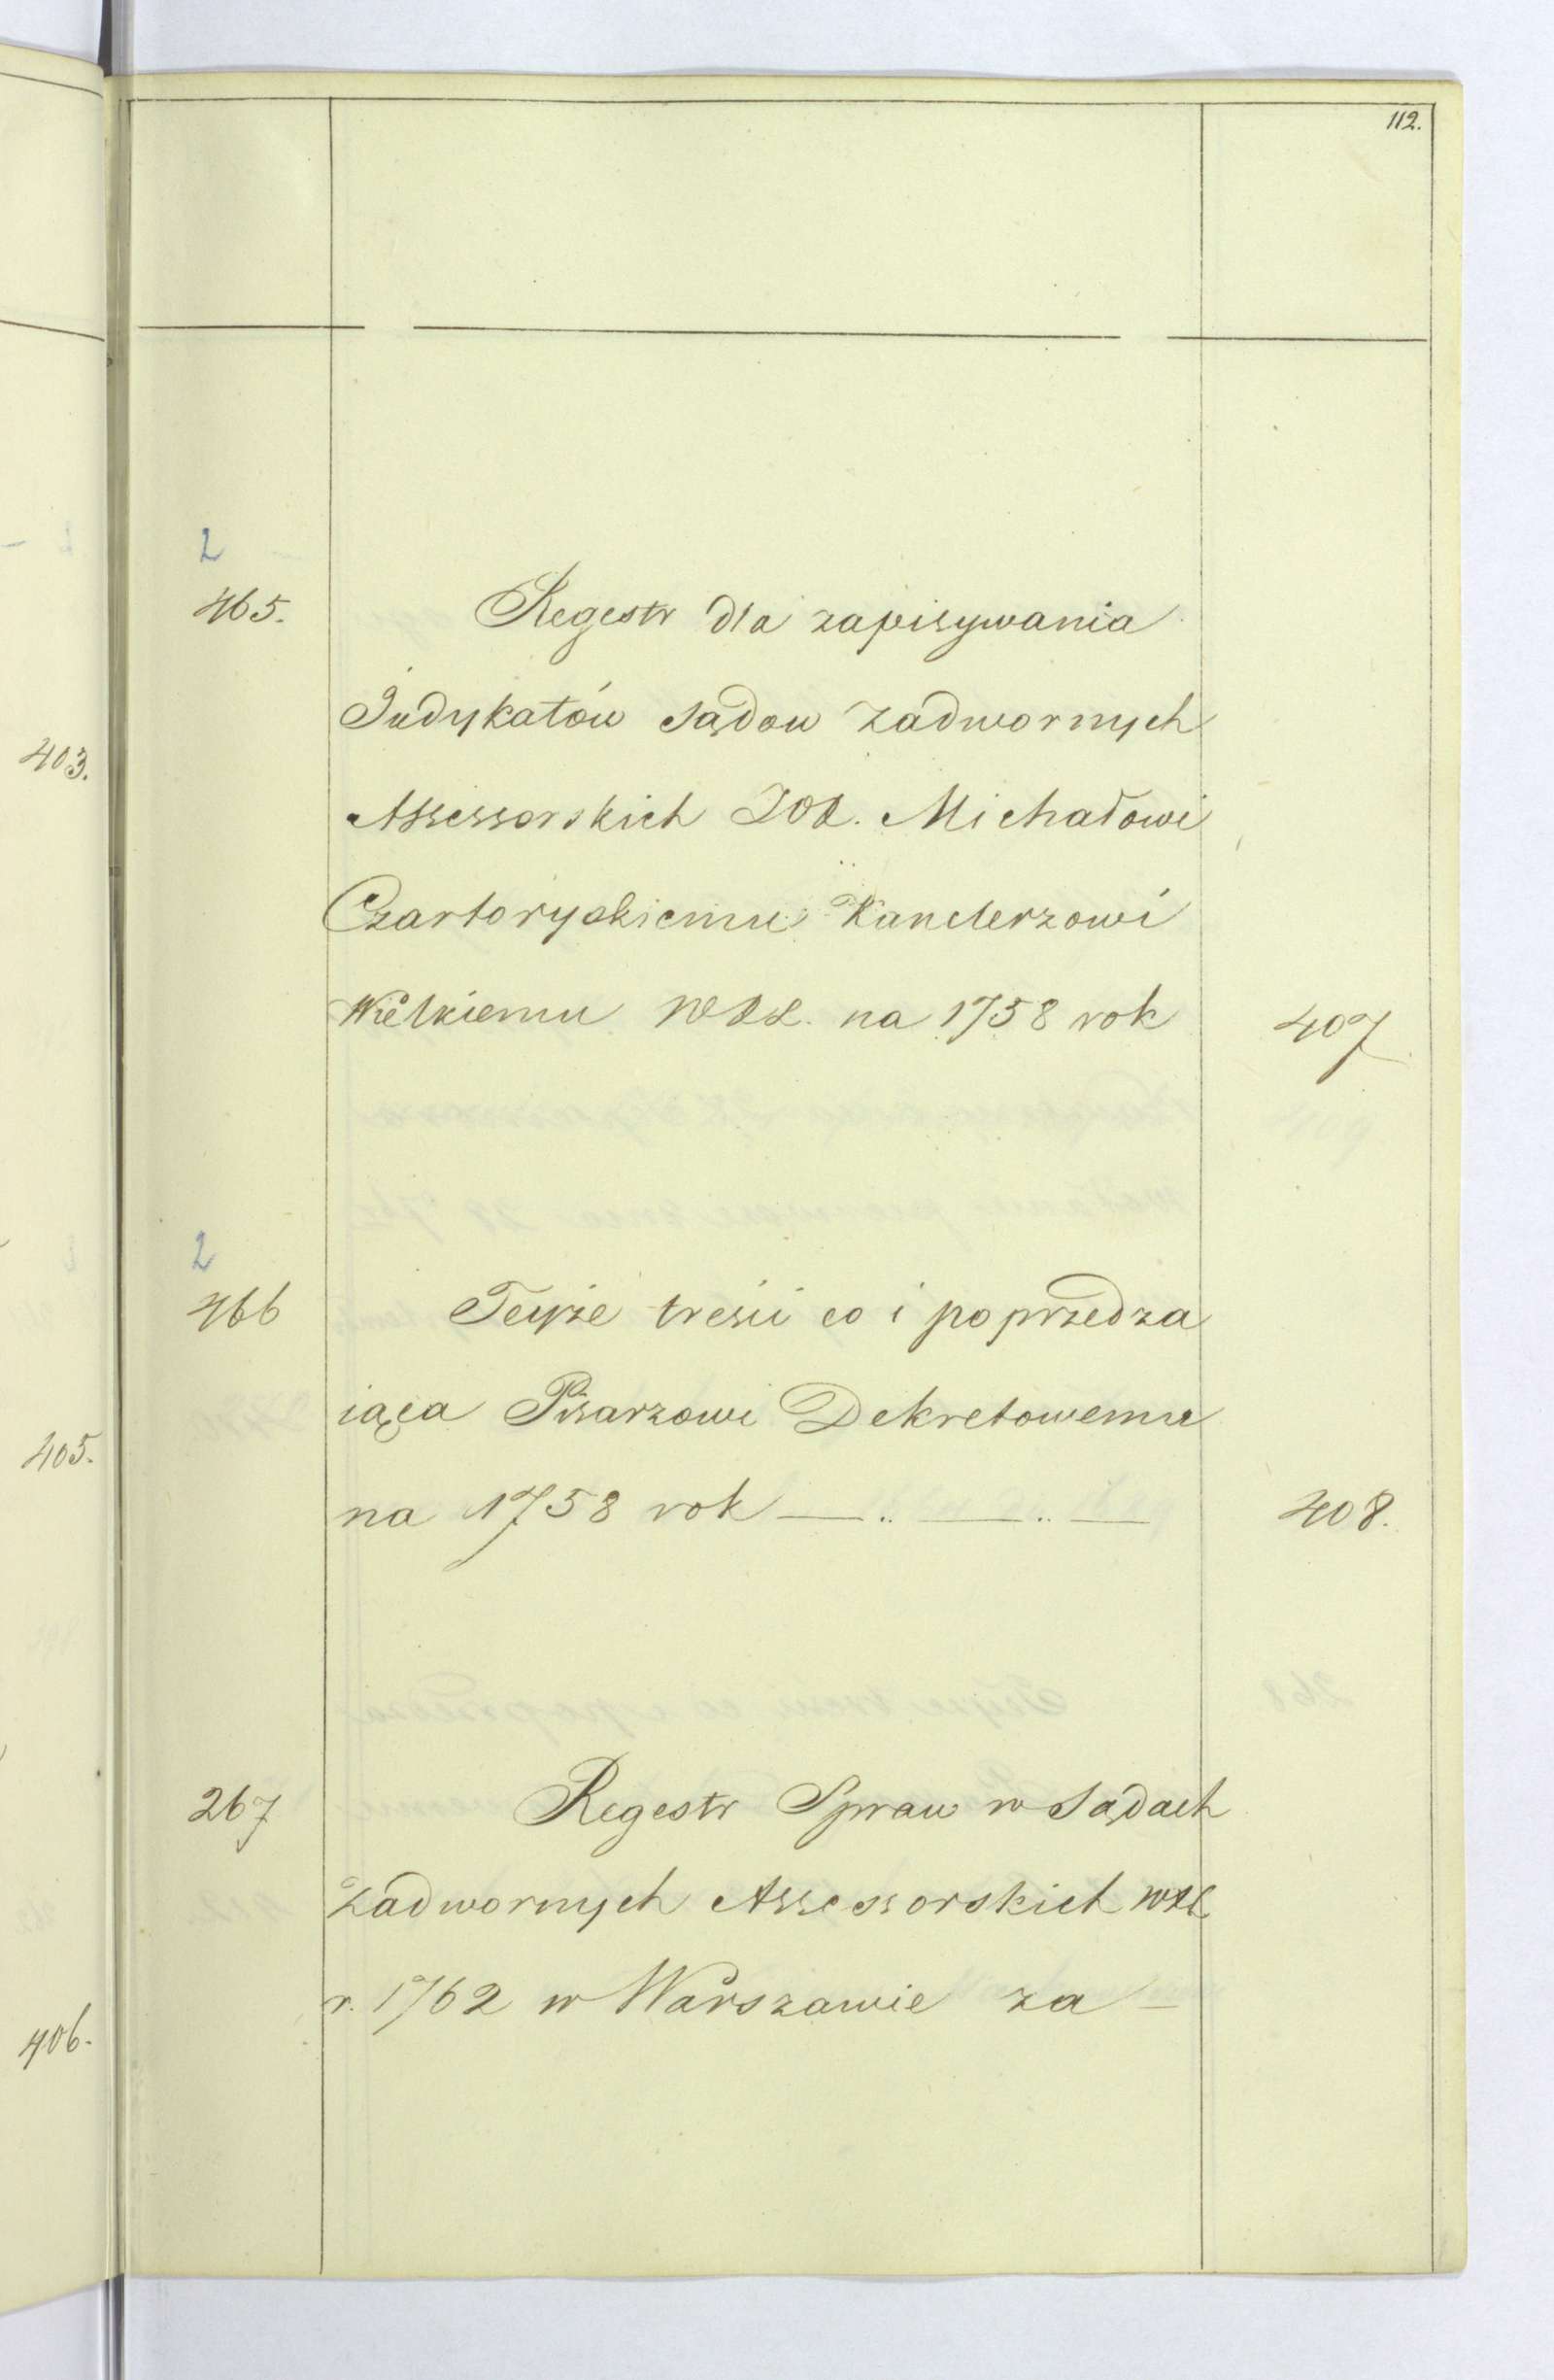 112.
403.
405.
406.
2
465.
Regestr dla zapisywania
Judykatów Sądow Zadwornych
Assessorskich Michałowi
Czartoryskiemu Kanclerzowi
Wielkiemu WXL. na 1758 rok
407
2
466
Teyże treści co i poprzedza
iąca Pisarzowi Dekretowemu
na 1758 rok — .. — .. —
408.
267
Regestr Spraw w Sądach
Zadwornych Assessorskich WXL
r. 1762 w Warszawie za —